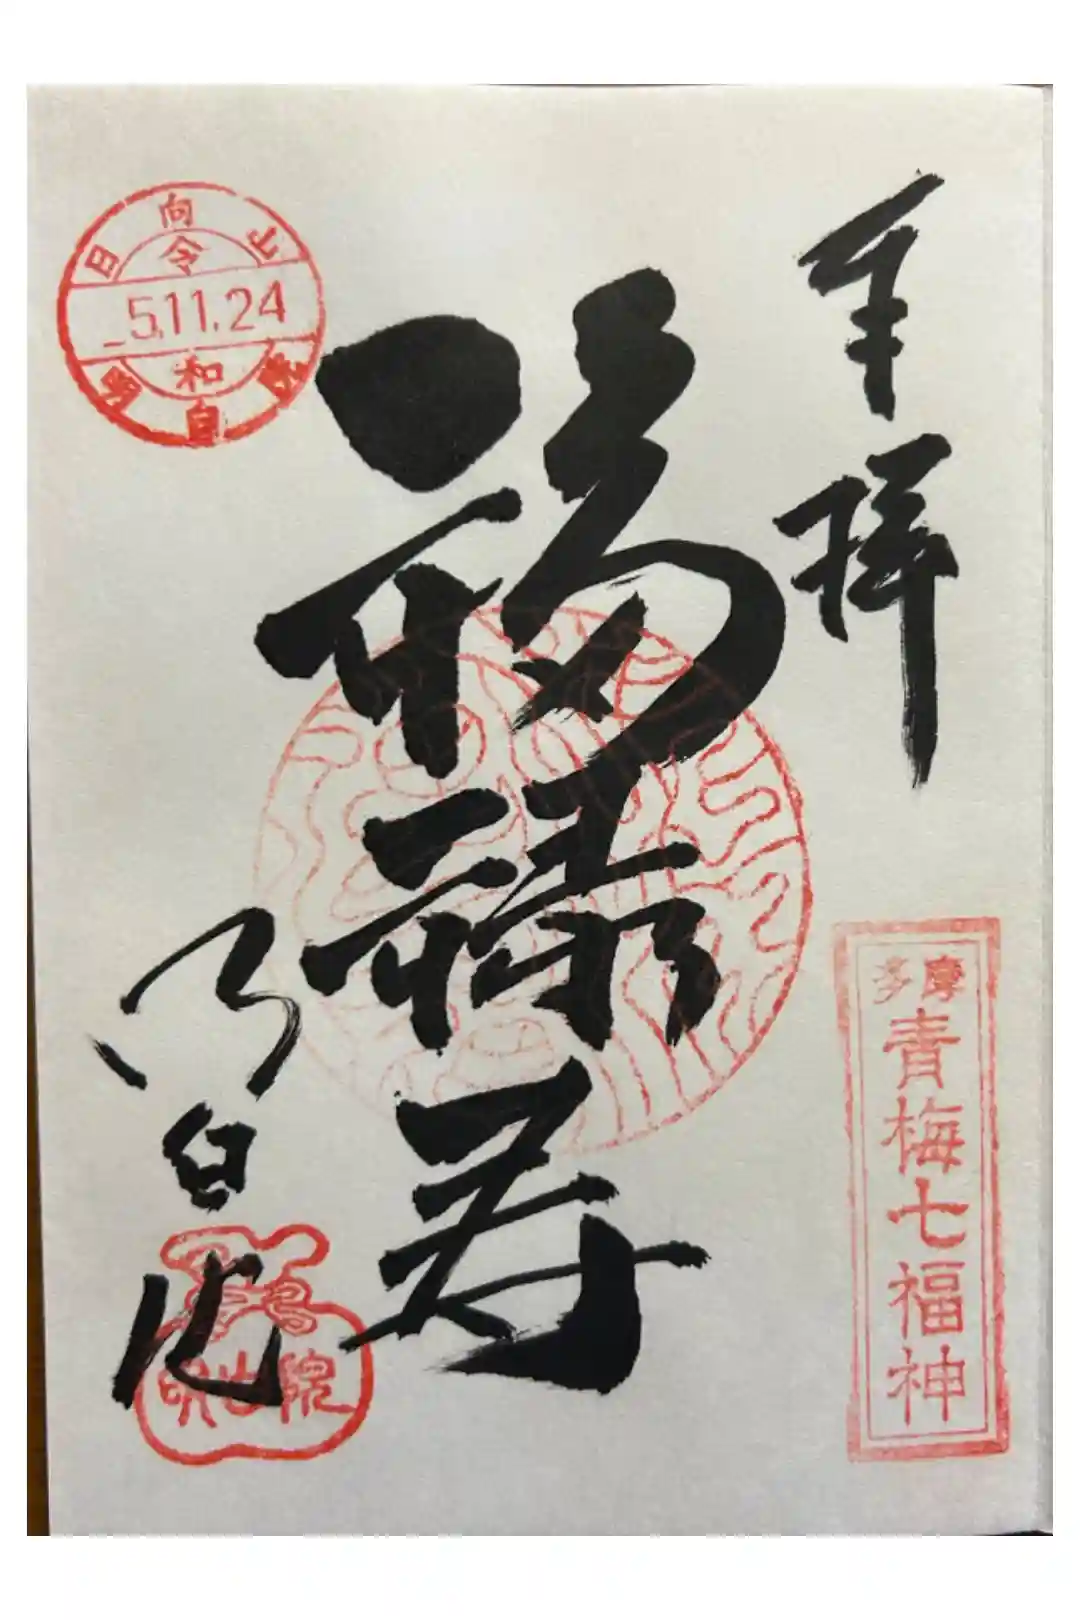 奉拝
多摩
青梅七福神
福禄寿
日向山
令
5.11.24
和
明白院
明白院
明白院